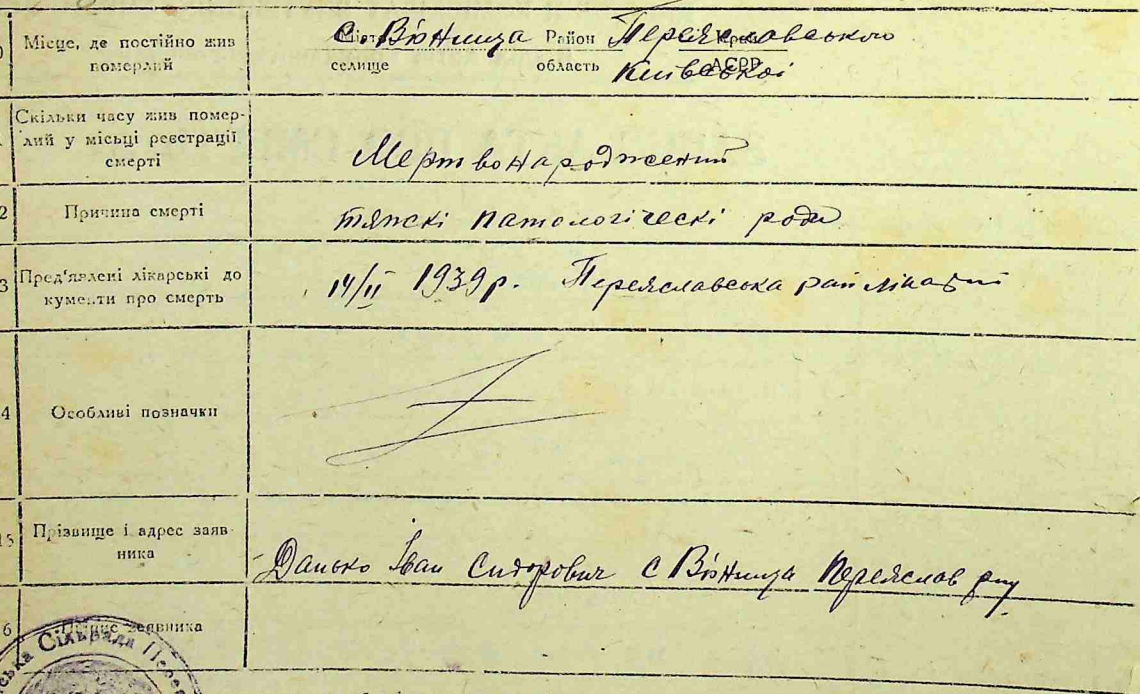 Місце, де постійно жив
померлий
с. Вюнища Район Переяславського
селище область Київської АСРР
Скільки часу жив помер-
лий у місці реєстрації
смерті
Мертвонароджений
2 Причина смерті
тяжкі патологіческі роди
3 Пред'явлені лікарські до
кументи про смерть
14/II 1939р. Переяславська
4 Особливі позначки
15 Прізвище і адрес заяв-
ника
Данько Іван Сидорович с Вюнища Переяслав р-ну
6 заявника
Сільрада